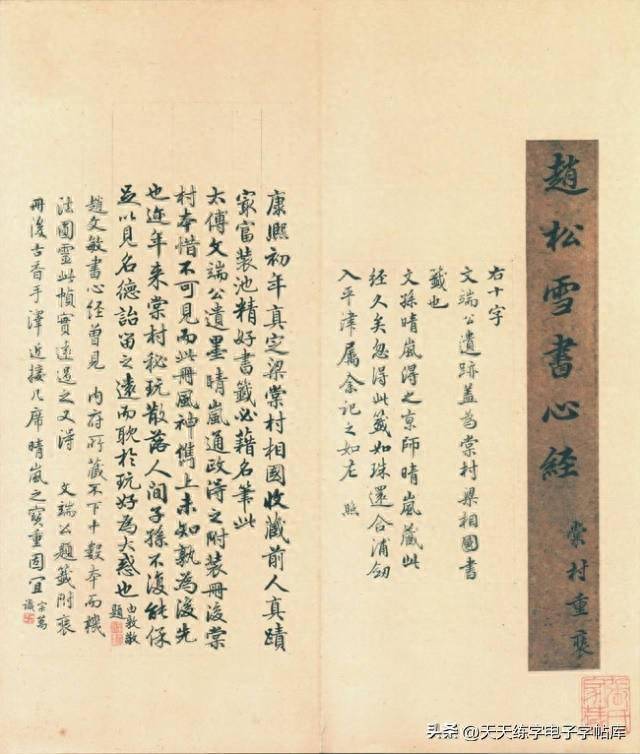 趙松雪書心經
棠村重裝
右十字
文端公遺跡蓋為棠村梁相國書
籤也
文孫晴嵐得之京師晴嵐藏此
經久矣忽得此籤如珠還合浦劒
入平津屬余記之如左 照
康熙初年真定梁棠村相國收藏前人真蹟
家富裝池精好書籤必藉名筆此
太傅文端公遺墨晴嵐通政得之附裝冊後棠
村本惜不可見而此冊風神儁上未知孰為後先
也近年来棠村秘玩散落人間子孫不復能保
足以見名德詒留之遠而耽於玩好為大惑也
由敦敬題
趙文敏書心經曾見 內府所藏不下十數本而機
法圓靈此幀實遠過之又得 文端公題籤附裝
冊後古香手澤近接几席晴嵐之寶重固宜
宗萬識
头条 @天天练字电子字帖库